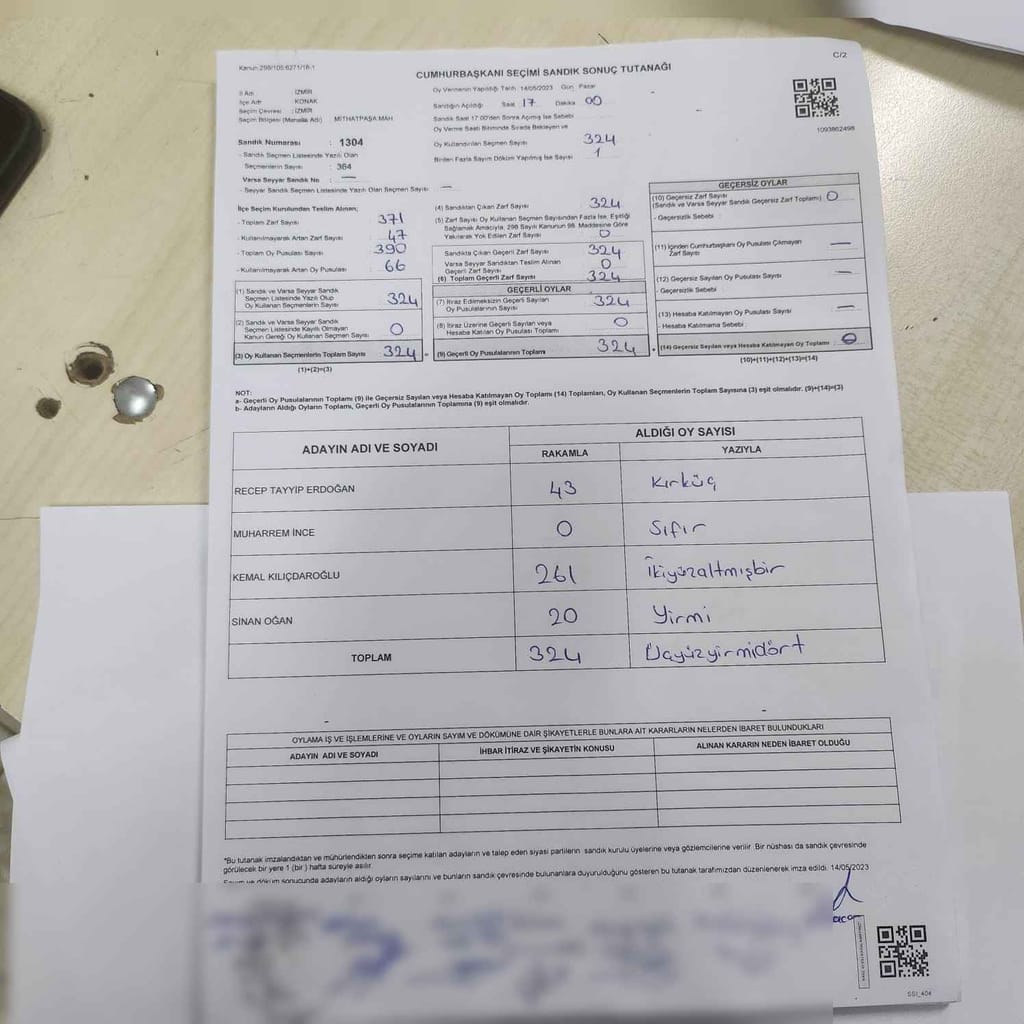 Kanun 298/105 6271/18-1
C/2
CUMHURBAŞKANI SEÇİMİ SANDIK SONUÇ TUTANAĞI
İl Adı : İZMİR
İlçe Adı : KONAK
Seçim Çevresi : İZMİR
Seçim Bölgesi (Mahalle Adı) : MİTHATPAŞA MAH
Sandık Numarası : 1304
- Sandık Seçmen Listesinde Yazılı Olan
Seçmenlerin Sayısı : 364
Varsa Seyyar Sandık No : —
- Seyyar Sandık Seçmen Listesinde Yazılı Olan Seçmen Sayısı : —
Oy Vermenin Yapıldığı Tarih 14/05/2023 Gün Pazar
Sandığın Açıldığı Saat 17 Dakika 00
Sandık Saat 17.00'den Sonra Açılmış İse Sebebi
Oy Verme Saati Bitiminde Sırada Bekleyen ve
Oy Kullandırılan Seçmen Sayısı 324
Birden Fazla Sayım Döküm Yapılmış İse Sayısı 1
1093862498
İlçe Seçim Kurulundan Teslim Alınan;
- Toplam Zarf Sayısı 371
- Kullanılmayarak Artan Zarf Sayısı 47
- Toplam Oy Pusulası Sayısı 390
- Kullanılmayarak Artan Oy Pusulası 66
(1) Sandık ve Varsa Seyyar Sandık
Seçmen Listesinde Yazılı Olup
Oy Kullanan Seçmenlerin Sayısı 324
(2) Sandık ve Varsa Seyyar Sandık
Seçmen Listesinde Kayıtlı Olmayan
Kanun Gereği Oy Kullanan Seçmen Sayısı 0
(3) Oy Kullanan Seçmenlerin Toplam Sayısı 324 =
(1)+(2)=(3)
(4) Sandıktan Çıkan Zarf Sayısı 324
(5) Zarf Sayısı Oy Kullanan Seçmen Sayısından Fazla İse, Eşitliği
Sağlamak Amacıyla, 298 Sayılı Kanunun 98. Maddesine Göre
Yakılarak Yok Edilen Zarf Sayısı 0
Sandıkta Çıkan Geçerli Zarf Sayısı 324
Varsa Seyyar Sandıktan Teslim Alınan
Geçerli Zarf Sayısı 0
(6) Toplam Geçerli Zarf Sayısı 324
GEÇERLİ OYLAR
(7) İtiraz Edilmeksizin Geçerli Sayılan
Oy Pusulalarının Sayısı 324
(8) İtiraz Üzerine Geçerli Sayılan veya
Hesaba Katılan Oy Pusulası Toplamı 0
(9) Geçerli Oy Pusulalarının Toplamı 324 +
GEÇERSİZ OYLAR
(10) Geçersiz Zarf Sayısı 0
(Sandık ve Varsa Seyyar Sandık Geçersiz Zarf Toplamı)
- Geçersizlik Sebebi :
(11) İçinden Cumhurbaşkanı Oy Pusulası Çıkmayan
Zarf Sayısı —
(12) Geçersiz Sayılan Oy Pusulası Sayısı —
- Geçersizlik Sebebi :
(13) Hesaba Katılmayan Oy Pusulası Sayısı —
- Hesaba Katılmama Sebebi :
(14) Geçersiz Sayılan veya Hesaba Katılmayan Oy Toplamı
(10)+(11)+(12)+(13)=(14)
NOT:
a- Geçerli Oy Pusulalarının Toplamı (9) ile Geçersiz Sayılan veya Hesaba Katılmayan Oy Toplamı (14) Toplamları, Oy Kullanan Seçmenlerin Toplam Sayısına (3) eşit olmalıdır. (9)+(14)=(3)
b- Adayların Aldığı Oyların Toplamı, Geçerli Oy Pusulalarının Toplamına (9) eşit olmalıdır.
ADAYIN ADI VE SOYADI
ALDIĞI OY SAYISI
RAKAMLA YAZIYLA
RECEP TAYYİP ERDOĞAN 43 Kırküç
MUHARREM İNCE 0 Sıfır
KEMAL KILIÇDAROĞLU 261 İkiyüzaltmışbir
SİNAN OĞAN 20 Yirmi
TOPLAM 324 Üçyüzyirmidört
OYLAMA İŞ VE İŞLEMLERİNE VE OYLARIN SAYIM VE DÖKÜMÜNE DAİR ŞİKAYETLERLE BUNLARA AİT KARARLARIN NELERDEN İBARET BULUNDUKLARI
ADAYIN ADI VE SOYADI
İHBAR İTİRAZ VE ŞİKAYETİN KONUSU
ALINAN KARARIN NEDEN İBARET OLDUĞU
*Bu tutanak imzalandıktan ve mühürlendikten sonra seçime katılan adayların ve talep eden siyasi partilerin sandık kurulu üyelerine veya gözlemcilerine verilir. Bir nüshası da sandık çevresinde
görülecek bir yere 1 (bir) hafta süreyle asılır.
Sayım ve döküm sonucunda adayların aldığı oyların sayılarını ve bunların sandık çevresinde bulunanlara duyurulduğunu gösteren bu tutanak tarafımızdan düzenlenerek imza edildi. 14/05/2023
SSI_404